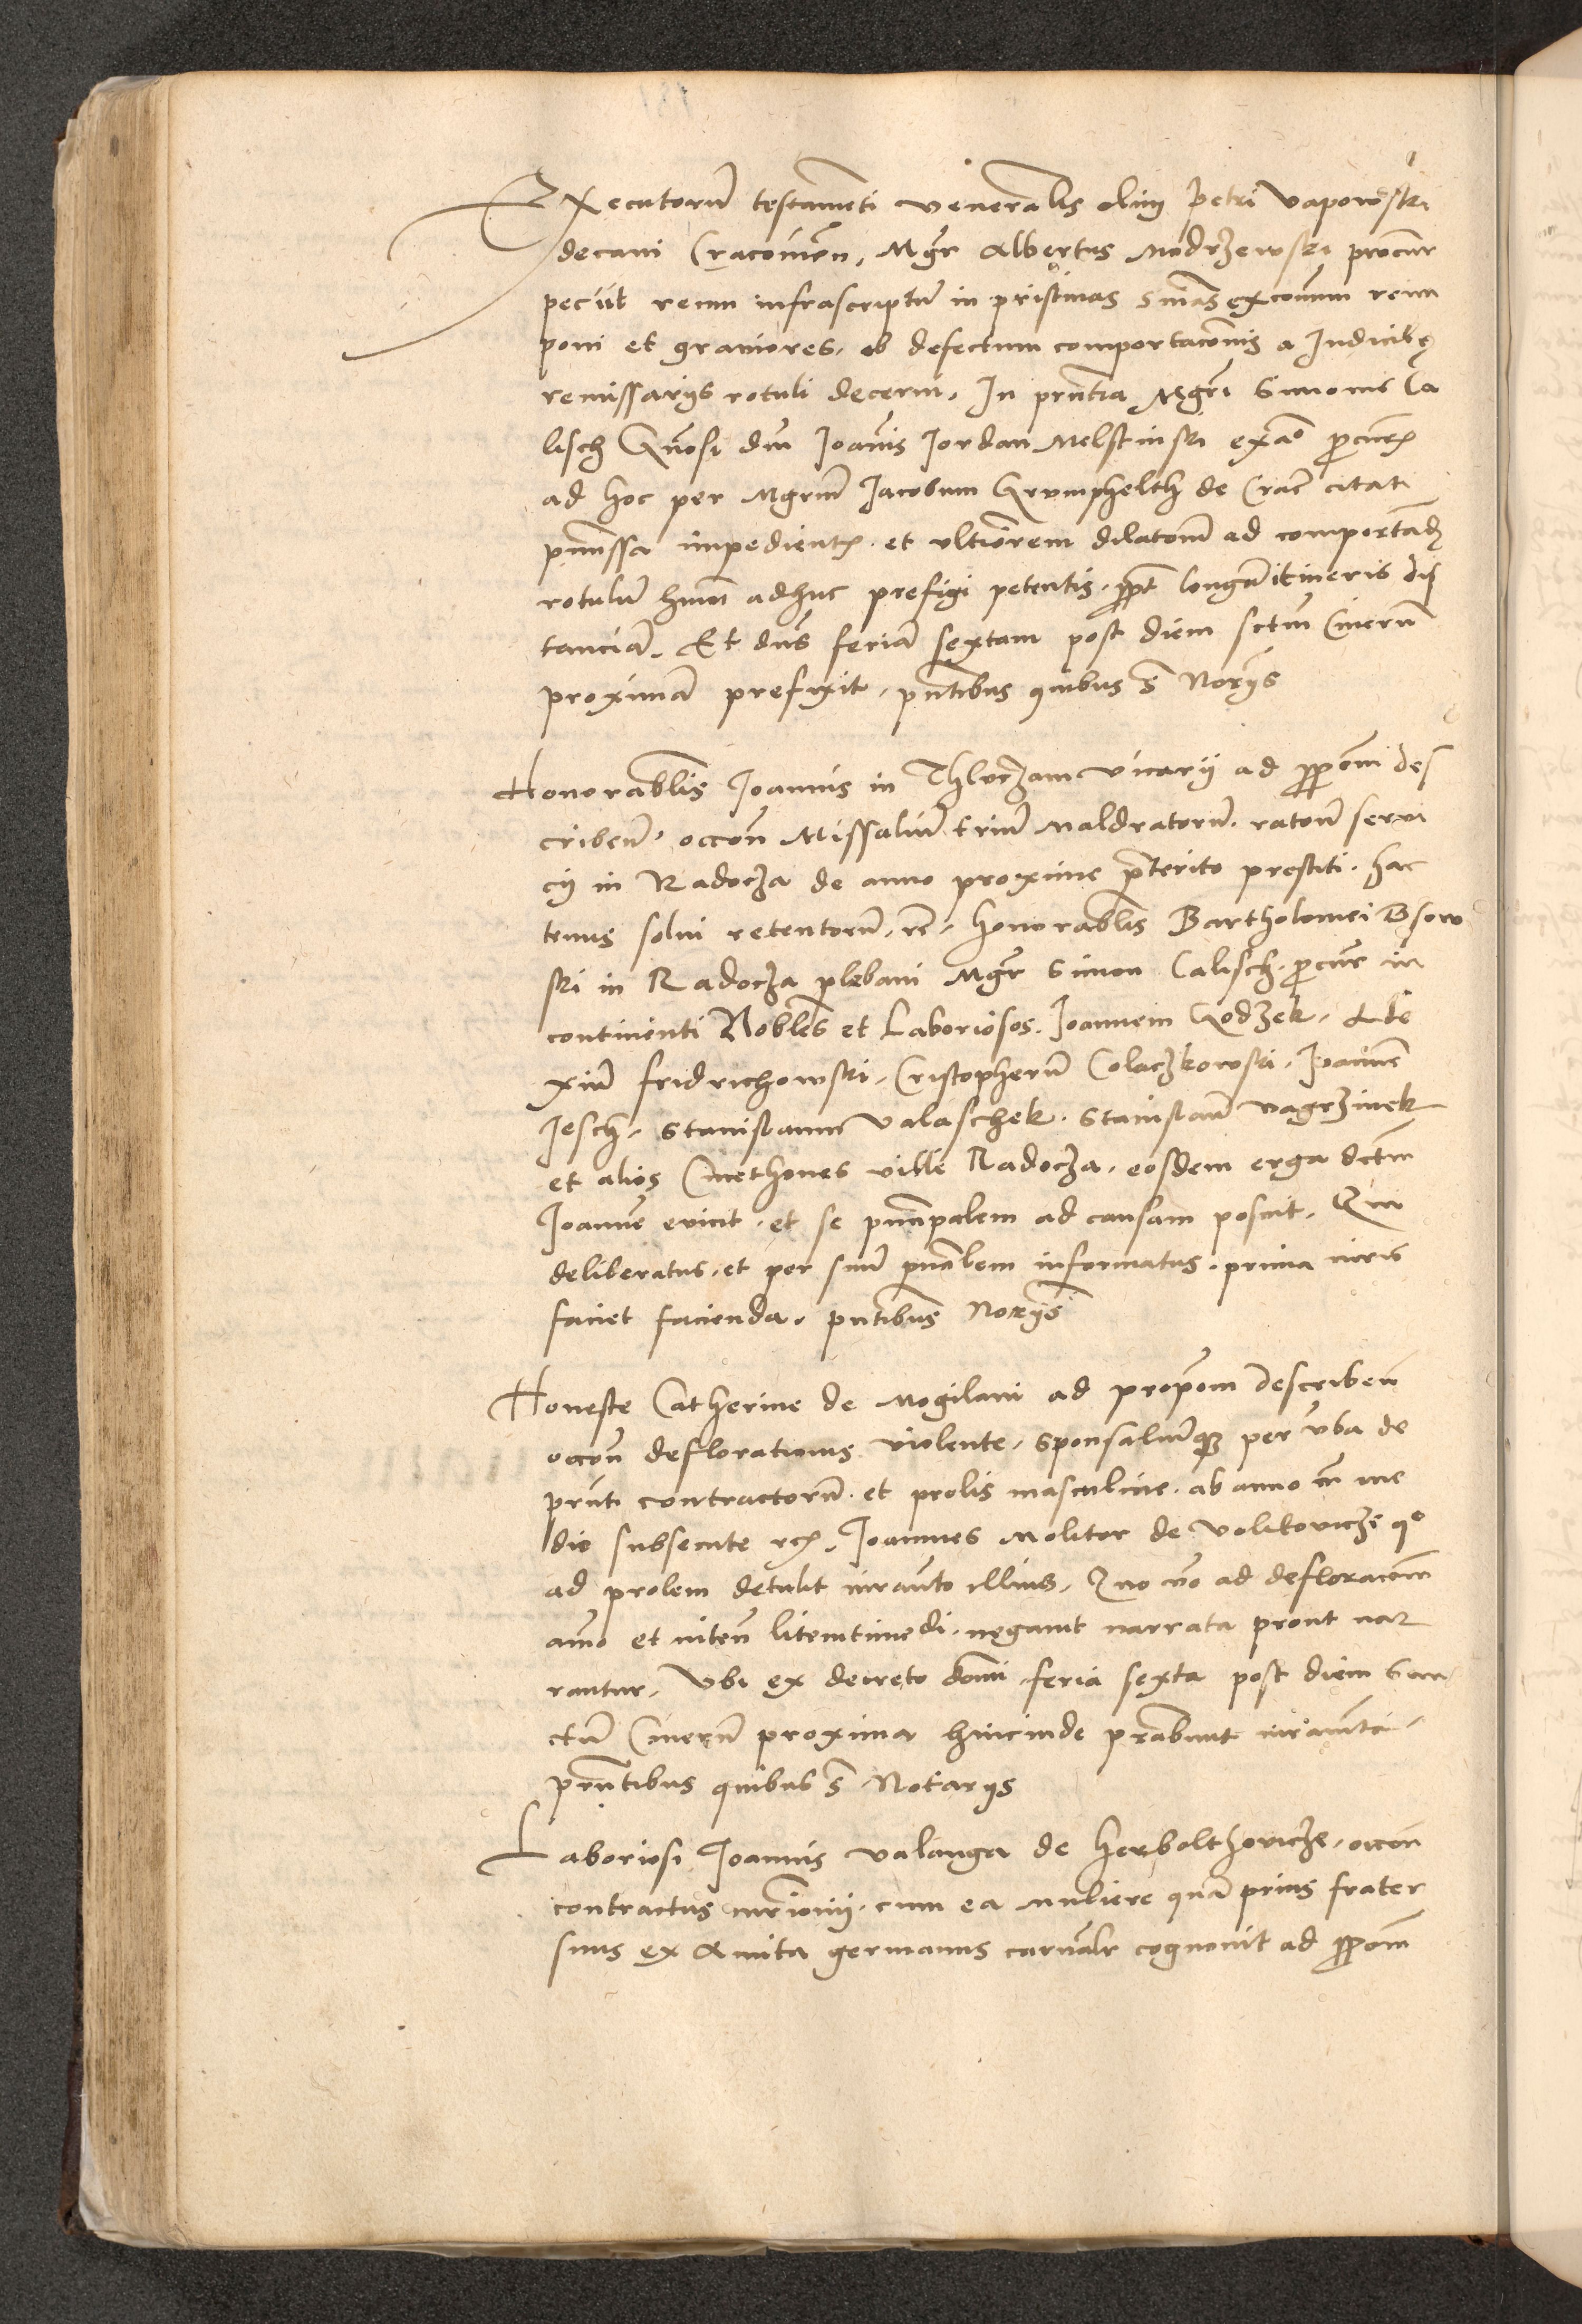 Executorũ testamẽti veneralis olim Petri Vapowski
decani Cracovieñ, Mgr Albertus Modrzewski procur
peciit reum infrascriptũ in pristinas snias excõmun reim
poni et graviores, ob defectum comportacõnis a Iudicibus
remissarijs rotuli decerni, In pñtia Mgri Simonis Ca
lisch Gñosi dñi Joañis Jordan Melstinski procur
ad hoc per Mgrum Jacobum Grumphelth de Crac citati
pmissa impedientis et ultiorem dilatõnẽ ad comportãd
rotulũ hmõi adhuc prefigi petentis, ppt longã itineris dis
tanciã, Et dñs feriã sextam post diem sctm Cinerũ
proximã prefixit, pñtibus quibus s Norijs
Honorablis Joannis in Thloczam vicarij ad ppõni des
cribeñ, occõñ Missaliũ triũ maldratorũ, ratõne servi
cij in Radocza de anno proxime pterito prestiti, hac
tenus solvi retentorũ, rc, honorablis Bartholomei Bsow
ski in Radocza plebani Mgr Simon Calisch, procur in
continenti Nobles et Laboriosos, Joannem Godzek, Ale
xiũ fridrichowski, Cristopherũ Colaczkowski, Joannẽ
Jesch, Stanislaum Valaschek, Stanislaũ Vagrzinek
et alios Cmethones ville Radocza, eosdem erga dctm
Joannẽ evicit, et se principalem ad causam posuit, Qui
deliberatus, et per suũ pncibem informatus, prima iuris
faciet facienda, pñtibus Norijs
Honeste Catherine de Mogilani ad propõm describeñ
occõñ deflorationis violente, sponsaliũqз per vba de
pñti contractorũ, et prolis masculine, ab anno cũ me
dio subsecute rei, Joannes Molitor de Volikovicze qo
ad prolem detulit iuramto illius, Quo vo ad defloracõm
anno et liteminedi, negavit narrata prout nar
rantur, Ubi ex decreto dõni feria sexta post diem San
ctũ Cinerũ proxima hincinde prabunt iuramta,
pñtibus quibus s Notarijs
Laboriosi Joannis Valanga de Herbolthovicze, occõñ
contractus mrimonij, cum ea muliere quã prius frater
suus ex Amita germanus carnalr cognovit ad ppõm